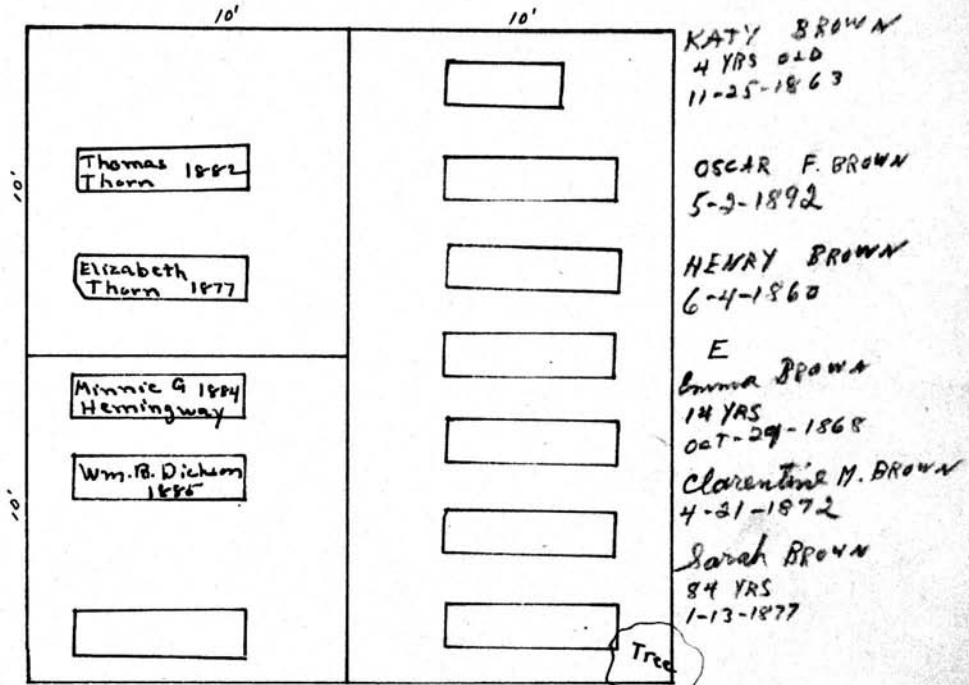 10'
10'
10'
10'
Thomas 1882
Thorn
Elizabeth
Thorn 1877
Minnie G 1884
Hemingway
Wm. B. Dickson
1885
Tree
KATY BROWN
4 YRS OLD
11-25-1863
OSCAR F. BROWN
5-2-1892
HENRY BROWN
6-4-1860
E
Emma BROWN
14 YRS
OCT-29-1868
Clarentine M. BROWN
4-21-1872
Sarah BROWN
84 YRS
1-13-1877